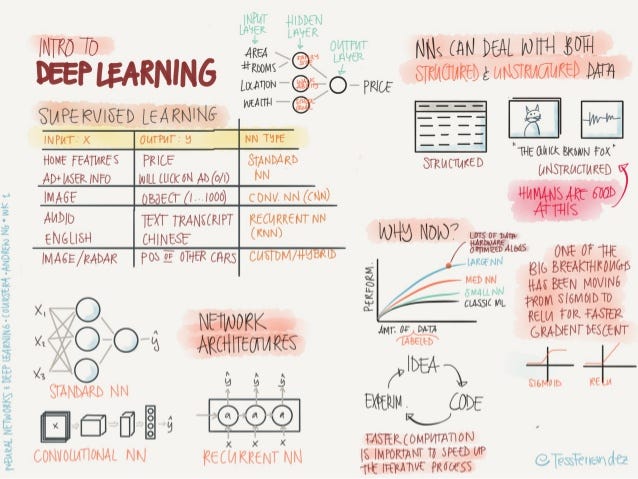 INTRO TO
DEEP LEARNING
INPUT LAYER
HIDDEN LAYER
OUTPUT LAYER
AREA
# ROOMS
LOCATION
WEALTH
PRICE
SUPERVISED LEARNING
INPUT: X OUTPUT: y NN TYPE
HOME FEATURES PRICE STANDARD
AD+USER INFO WILL CLICK ON AD (0/1) NN
IMAGE OBJECT (1...1000) CONV. NN (CNN)
AUDIO TEXT TRANSCRIPT RECURRENT NN
ENGLISH CHINESE (RNN)
IMAGE/RADAR POS OF OTHER CARS CUSTOM/HYBRID
X₁
X₂
X₃
ŷ
STANDARD NN
NETWORK
ARCHITECTURES
X
ŷ
CONVOLUTIONAL NN
ŷ ŷ ŷ
a a a
X X X
RECURRENT NN
NNs CAN DEAL WITH BOTH
STRUCTURED & UNSTRUCTURED DATA
STRUCTURED
"THE QUICK BROWN FOX"
UNSTRUCTURED
HUMANS ARE GOOD
AT THIS
WHY NOW?
LOTS OF DATA
HARDWARE
OPTIMIZED ALGOS
LARGE NN
MED NN
SMALL NN
CLASSIC ML
PERFORM.
AMT. OF DATA
LABELED
ONE OF THE
BIG BREAKTHROUGHS
HAS BEEN MOVING
FROM SIGMOID TO
RELU FOR FASTER
GRADIENT DESCENT
SIGMOID
RELU
IDEA
EXPERIM.
CODE
FASTER COMPUTATION
IS IMPORTANT TO SPEED UP
THE ITERATIVE PROCESS
@TessFerrandez
NEURAL NETWORKS & DEEP LEARNING · COURSERA · ANDREW NG · WK 1